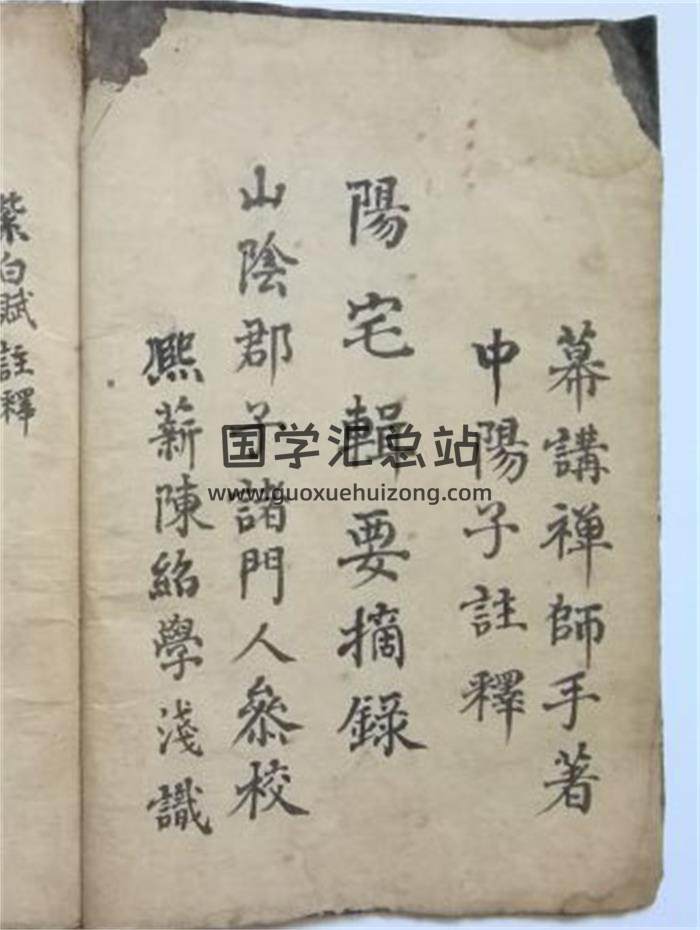 幕講禅師手著
中陽子註釋
陽宅輯要摘錄
山陰郡子諸門人叅校
熙薪陳紹學淺識
紫白賦註釋
国学汇总站
www.guoxuehuizong.com